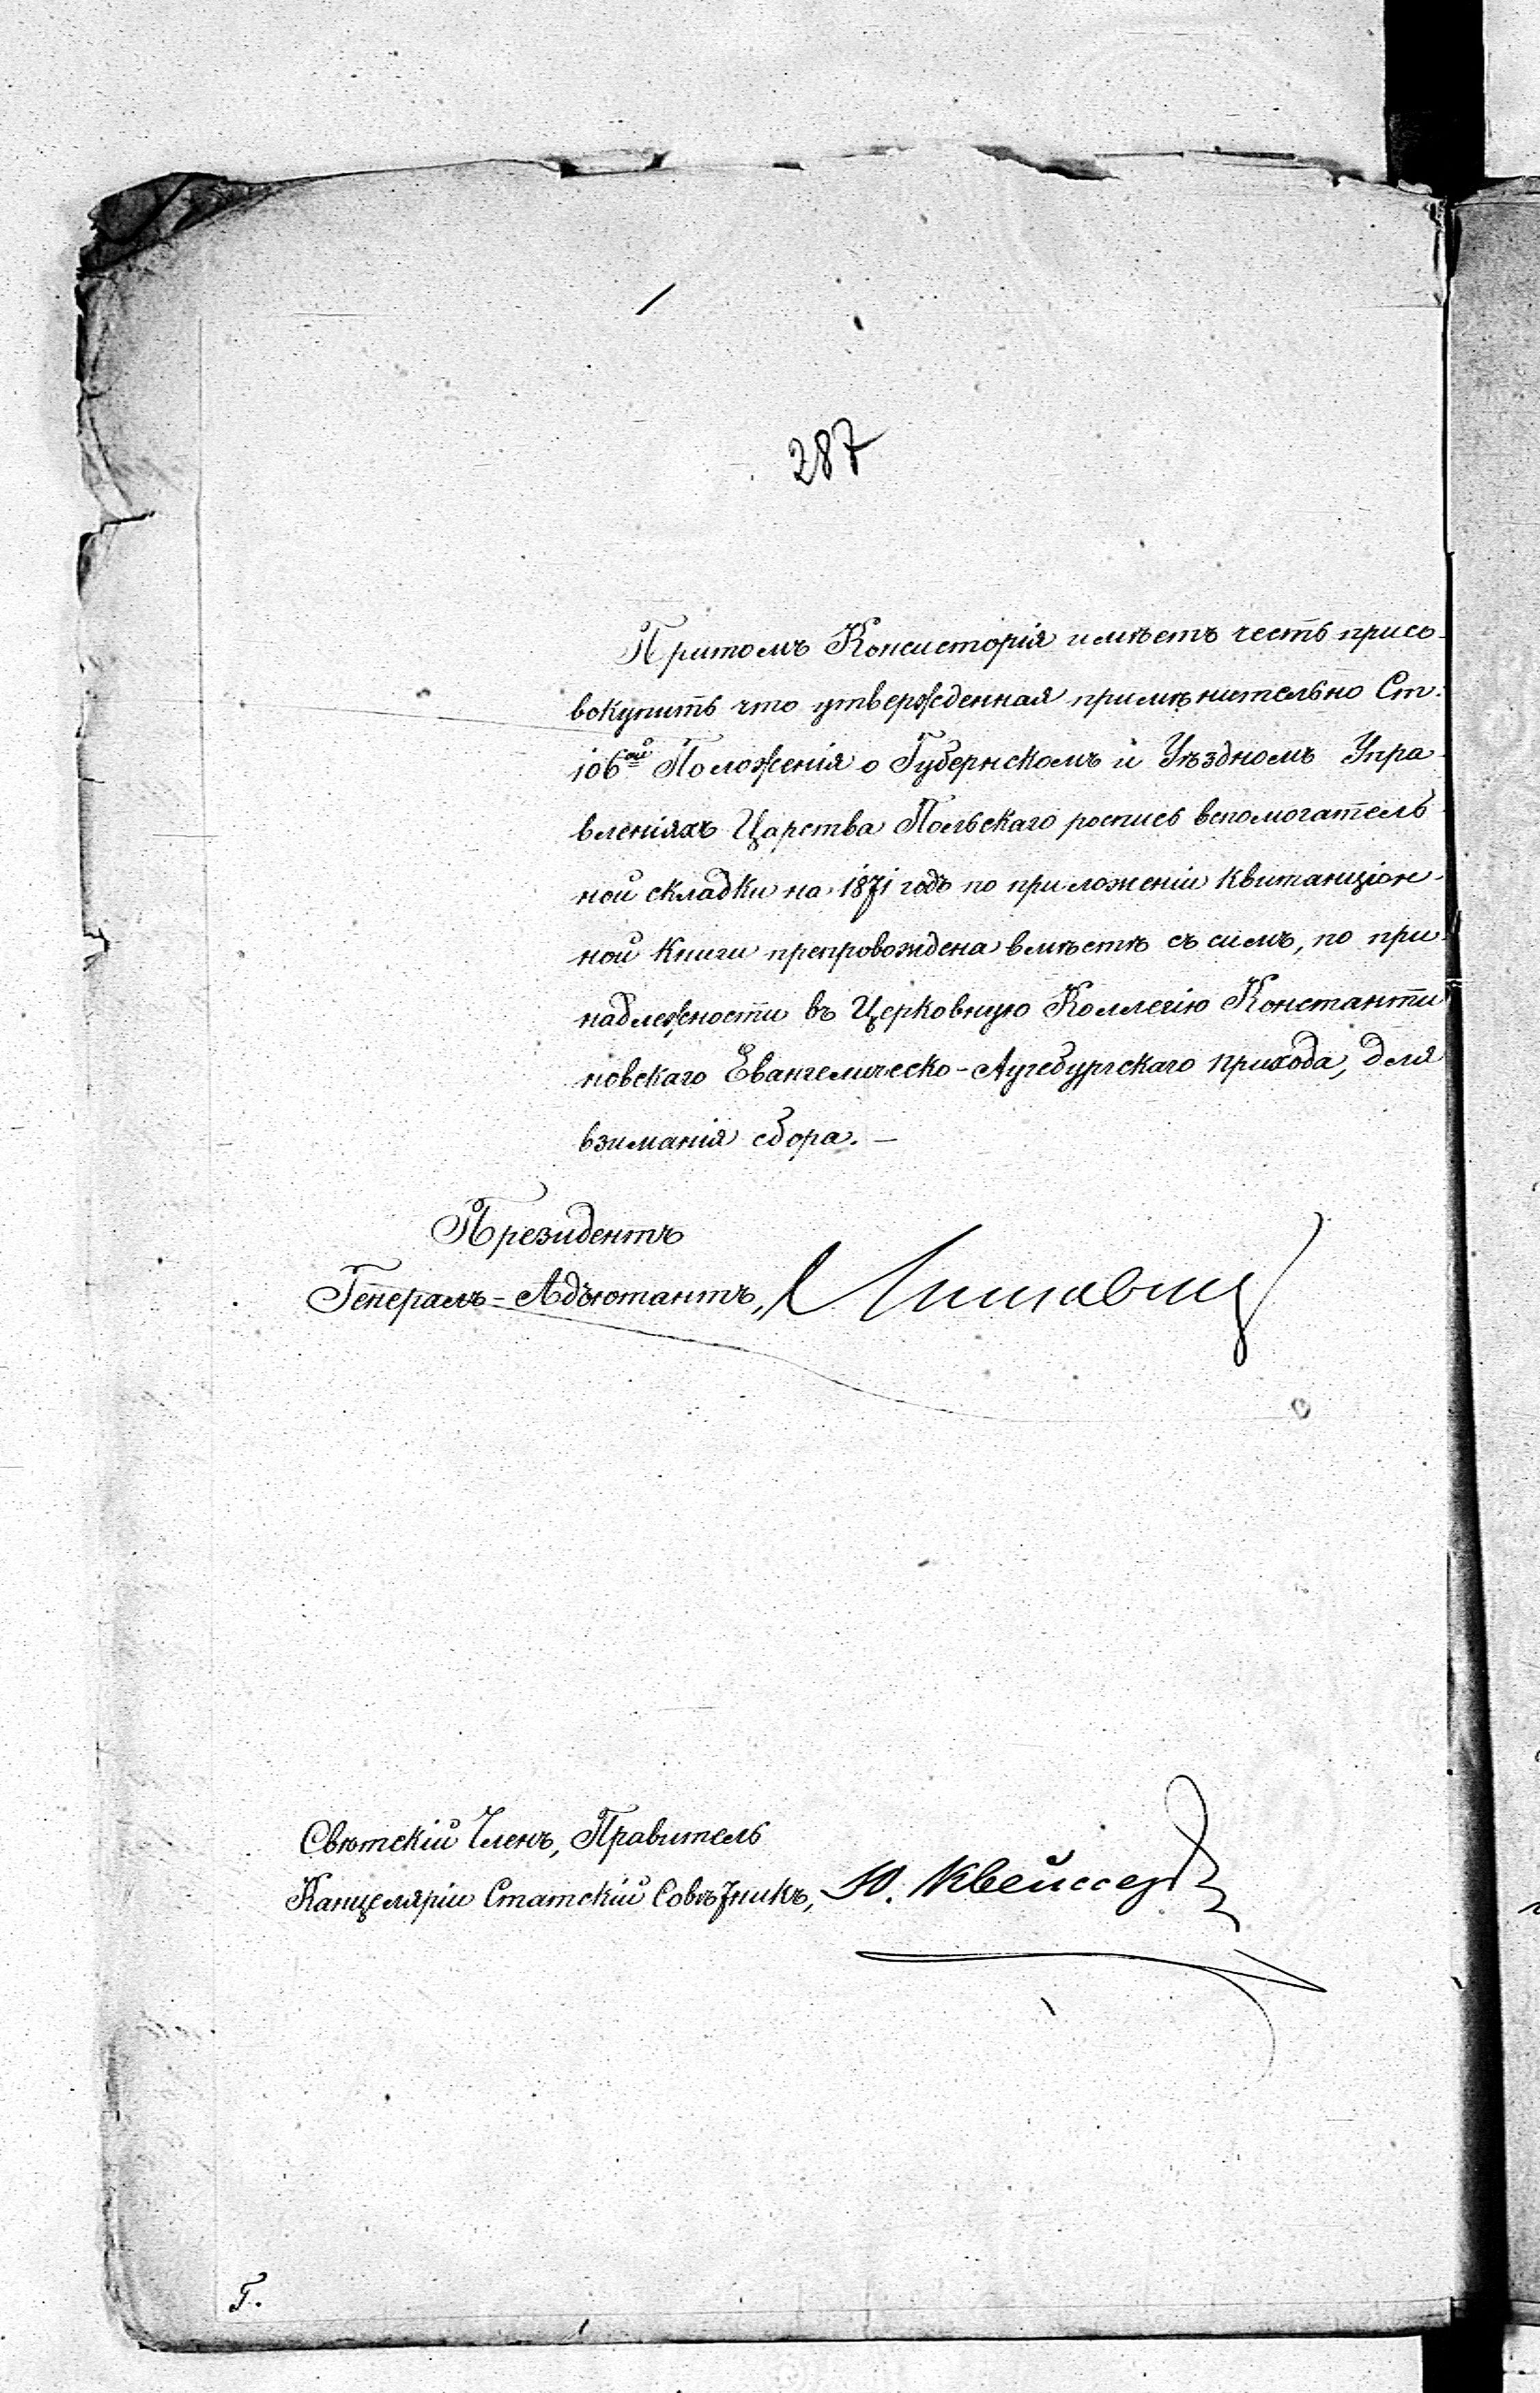 287
Притомъ Консисторія имѣетъ честь присо-
вокупить что утвержденная примѣнительно Ст.
106ой Положенія о Губернскомъ и Уѣздномъ Упра-
вленіяхъ Царства Польскаго роспись вспомогатель-
ной складки на 1871 годъ по приложеніи квитанціон-
ной книги препровождена вмѣстѣ съ симъ, по при-
надлежности въ Церковную Коллегію Константи
новскаго Евангелическо-Аугсбургскаго прихода, для
взиманія сбора. —
Президентъ
Генералъ-Адъютантъ,
Свѣтскій Членъ, Правитель
Канцеляріи Статскій Совѣтникъ, Ю.
Г.